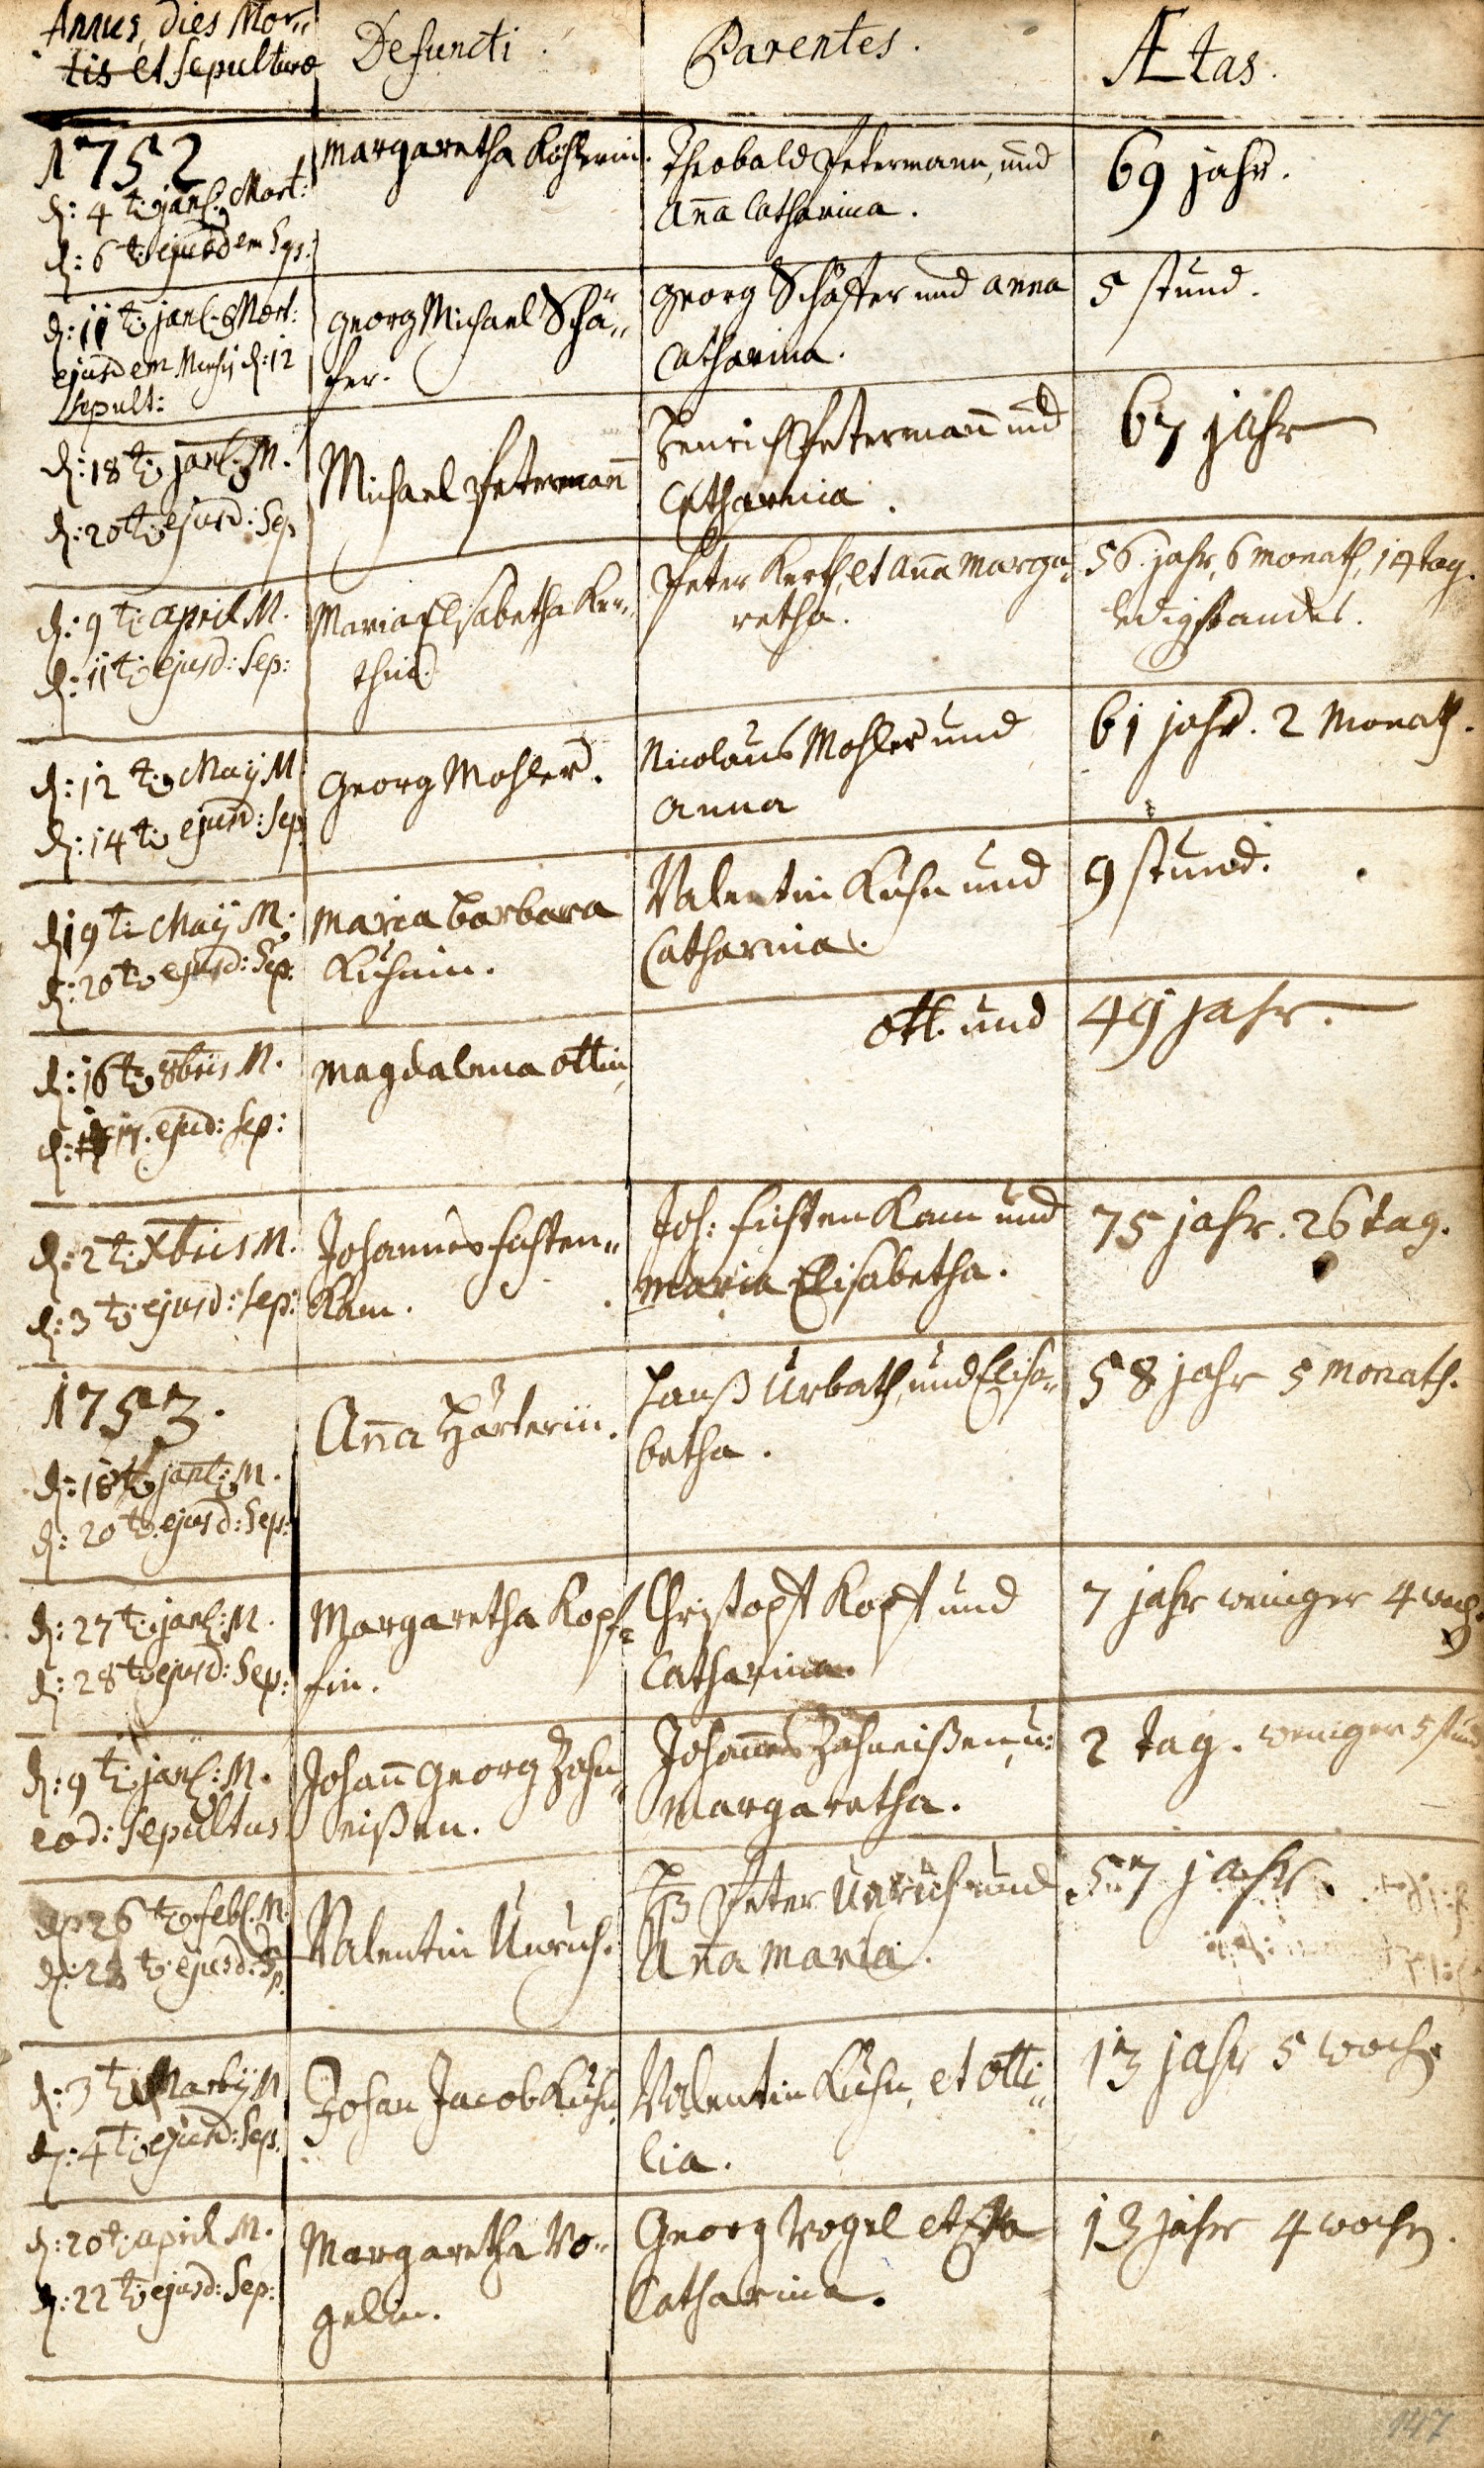 Annus, dies Mor„
tis et sepulturæ
Defuncti.
Parentes.
Ætas.
1752
d: 4 t: janr. Mort:
d: 6 t: ejusdem Sep:
Margaretha Köhlerin.
Theobald Petermann, und
Aña Catharina.
69 jahr.
d: 11 t: janr. Mort:
ejusdem Mensis d: 12
sepult:
Georg Michael Schä„
fer.
Georg Schäffer und Anna
Catharina.
5 stund.
d: 18 t: janr. M.
d: 20 t: ejusd: Sep
Michael Petermañ
Henrich Petermañ und
Catharina.
67 jahr
d: 9 t: April M.
d: 11 t: ejusd: Sep:
Maria Elisabetha Ker„
thin.
Peter Kerth, et Aña Marga„
retha.
56. jahr, 6 monath, 14 tag.
ledigstandes.
d: 12 t: Maij M.
d: 14 t: ejusd: Sep
Georg Mohler.
Nicolaus Mohler und
Anna
61 jahr. 2 Monath.
d 19 t: Maij M:
d: 20 t: ejusd: Sep:
Maria Barbara
Kuhnin.
Valentin Kuhn und
Catharina.
9 stund.
d: 16 t: 8bris M.
d: 17. ejusd: Sep:
Magdalena Ottin,
Ott. und
49 jahr.
d: 2 t: Xbris M.
d: 3 t: ejusd: Sep:
Johannes Fuhsten„
Kam.
Joh: Fuhsten Kam und
Maria Elisabetha.
75 jahr. 26 tag.
1753.
d: 18 t: janr: M.
d: 20 t: ejusd: Sep:
Aña Härterin.
Hanß Urbath, und Elisa„
betha.
58 jahr 5 Monath.
d: 27 t: janr: M.
d: 28 t: ejusd: Sep:
Margaretha Kopf„
fin.
Christopf Kopf und
Catharina.
7 jahr weniger 4 woch.
d: 9 t: janr: M.
eod: sepultus
Johañ Georg Zahn„
eißen.
Johañes Zahneißen, u:
Margaretha.
2 tag. weniger 5 stund
26 t: febr. M.
d: 28 t: ejusd: Sep.
Valentin Unruh.
Hß Peter Unruh und
Aña Maria.
57 jahr.
d: 3 t: Martij M
d: 4 t: ejusd: Sep.
Johan Jacob Kuhn.
Valentin Kuhn, et Otti„
lia.
13 jahr 5 woch
d: 20 t: April M.
d: 22 t: ejusd: Sep:
Margaretha Vo„
gelin.
Georg Vogel et
Catharina.
13 jahr 4 woch.
147